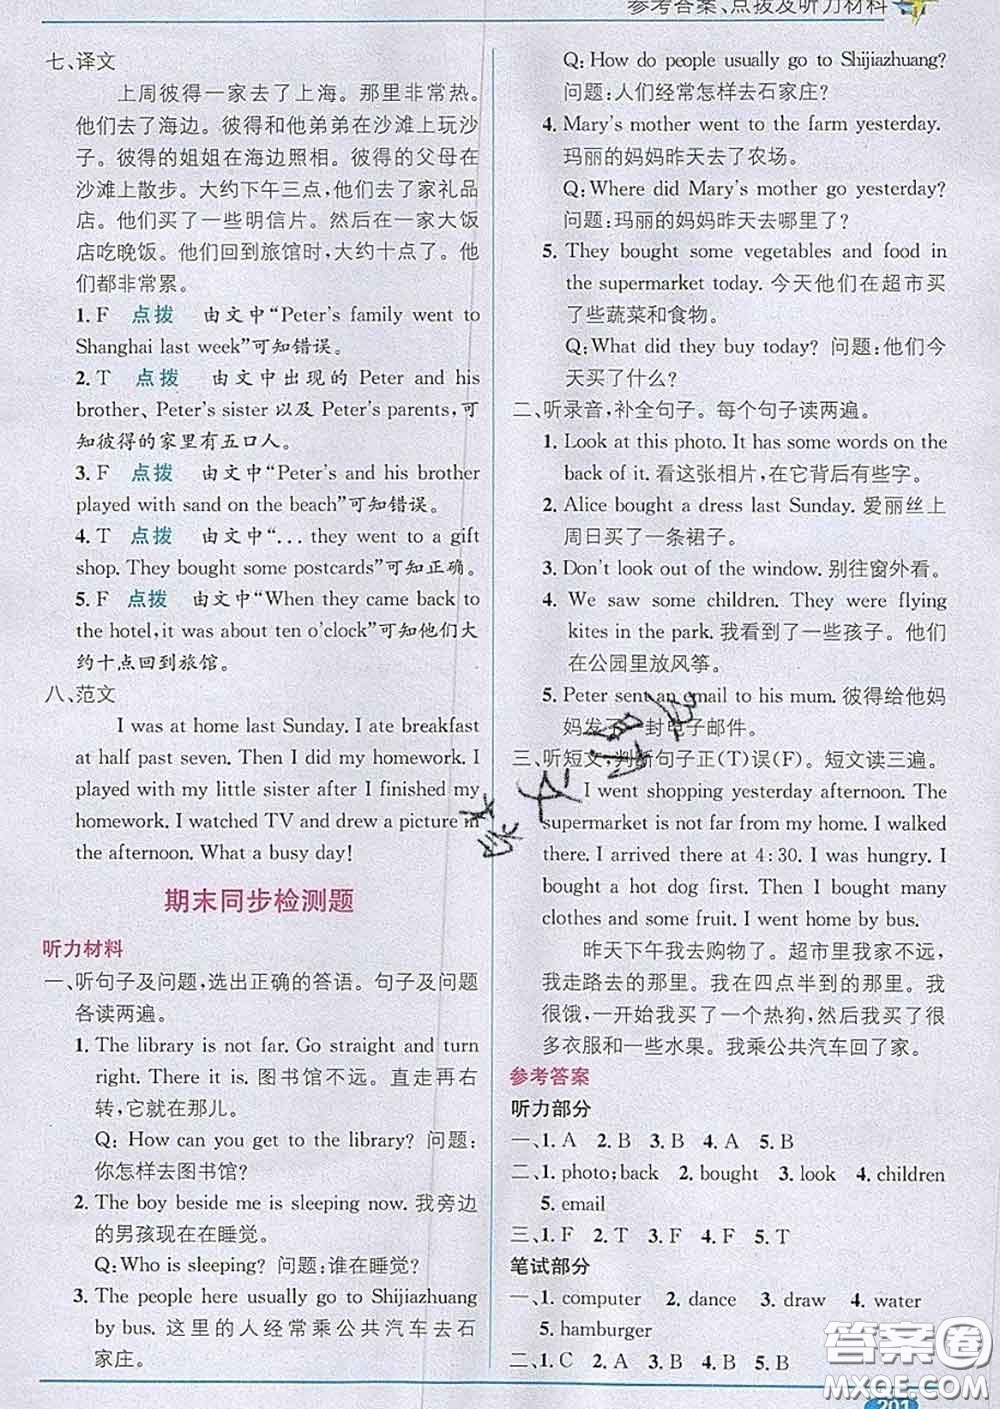 参考答案、点拨及听力材料
七、译文
上周彼得一家去了上海。那里非常热。
他们去了海边。彼得和他弟弟在沙滩上玩沙
子。彼得的姐姐在海边照相。彼得的父母在
沙滩上散步。大约下午三点,他们去了家礼品
店。他们买了一些明信片。然后在一家大饭
店吃晚饭。他们回到旅馆时,大约十点了。他
们都非常累。
1. F 点拨 由文中“Peter's family went to
Shanghai last week”可知错误。
2. T 点拨 由文中出现的 Peter and his
brother、Peter's sister 以及 Peter's parents,可
知彼得的家里有五口人。
3. F 点拨 由文中“Peter's and his brother
played with sand on the beach”可知错误。
4. T 点拨 由文中“... they went to a gift
shop. They bought some postcards”可知正确。
5. F 点拨 由文中“When they came back to
the hotel, it was about ten o'clock”可知他们大
约十点回到旅馆。
八、范文
I was at home last Sunday. I ate breakfast
at half past seven. Then I did my homework. I
played with my little sister after I finished my
homework. I watched TV and drew a picture in
the afternoon. What a busy day!
期末同步检测题
听力材料
一、听句子及问题,选出正确的答语。句子及问题
各读两遍。
1. The library is not far. Go straight and turn
right. There it is. 图书馆不远。直走再右
转,它就在那儿。
Q: How can you get to the library? 问题:
你怎样去图书馆?
2. The boy beside me is sleeping now. 我旁边
的男孩现在在睡觉。
Q: Who is sleeping? 问题:谁在睡觉?
3. The people here usually go to Shijiazhuang
by bus. 这里的人经常乘公共汽车去石
家庄。
Q: How do people usually go to Shijiazhuang?
问题:人们经常怎样去石家庄?
4. Mary's mother went to the farm yesterday.
玛丽的妈妈昨天去了农场。
Q: Where did Mary's mother go yesterday?
问题:玛丽的妈妈昨天去哪里了?
5. They bought some vegetables and food in
the supermarket today. 今天他们在超市买
了些蔬菜和食物。
Q: What did they buy today? 问题:他们今
天买了什么?
二、听录音,补全句子。每个句子读两遍。
1. Look at this photo. It has some words on the
back of it. 看这张相片,在它背后有些字。
2. Alice bought a dress last Sunday. 爱丽丝上
周日买了一条裙子。
3. Don't look out of the window. 别往窗外看。
4. We saw some children. They were flying
kites in the park. 我看到了一些孩子。他们
在公园里放风筝。
5. Peter sent an email to his mum. 彼得给他妈
妈发了一封电子邮件。
三、听短文,判断句子正(T)误(F)。短文读三遍。
I went shopping yesterday afternoon. The
supermarket is not far from my home. I walked
there. I arrived there at 4:30. I was hungry. I
bought a hot dog first. Then I bought many
clothes and some fruit. I went home by bus.
昨天下午我去购物了。超市里我家不远,
我走路去的那里。我在四点半到的那里。我
很饿,一开始我买了一个热狗,然后我买了很
多衣服和一些水果。我乘公共汽车回了家。
参考答案
听力部分
一、1. A 2. B 3. B 4. A 5. B
二、1. photo; back 2. bought 3. look 4. children
5. email
三、1. F 2. T 3. F 4. F 5. T
笔试部分
一、1. computer 2. dance 3. draw 4. water
5. hamburger
二、1. C 2. A 3. B
答案圈
MXQE.COM
201